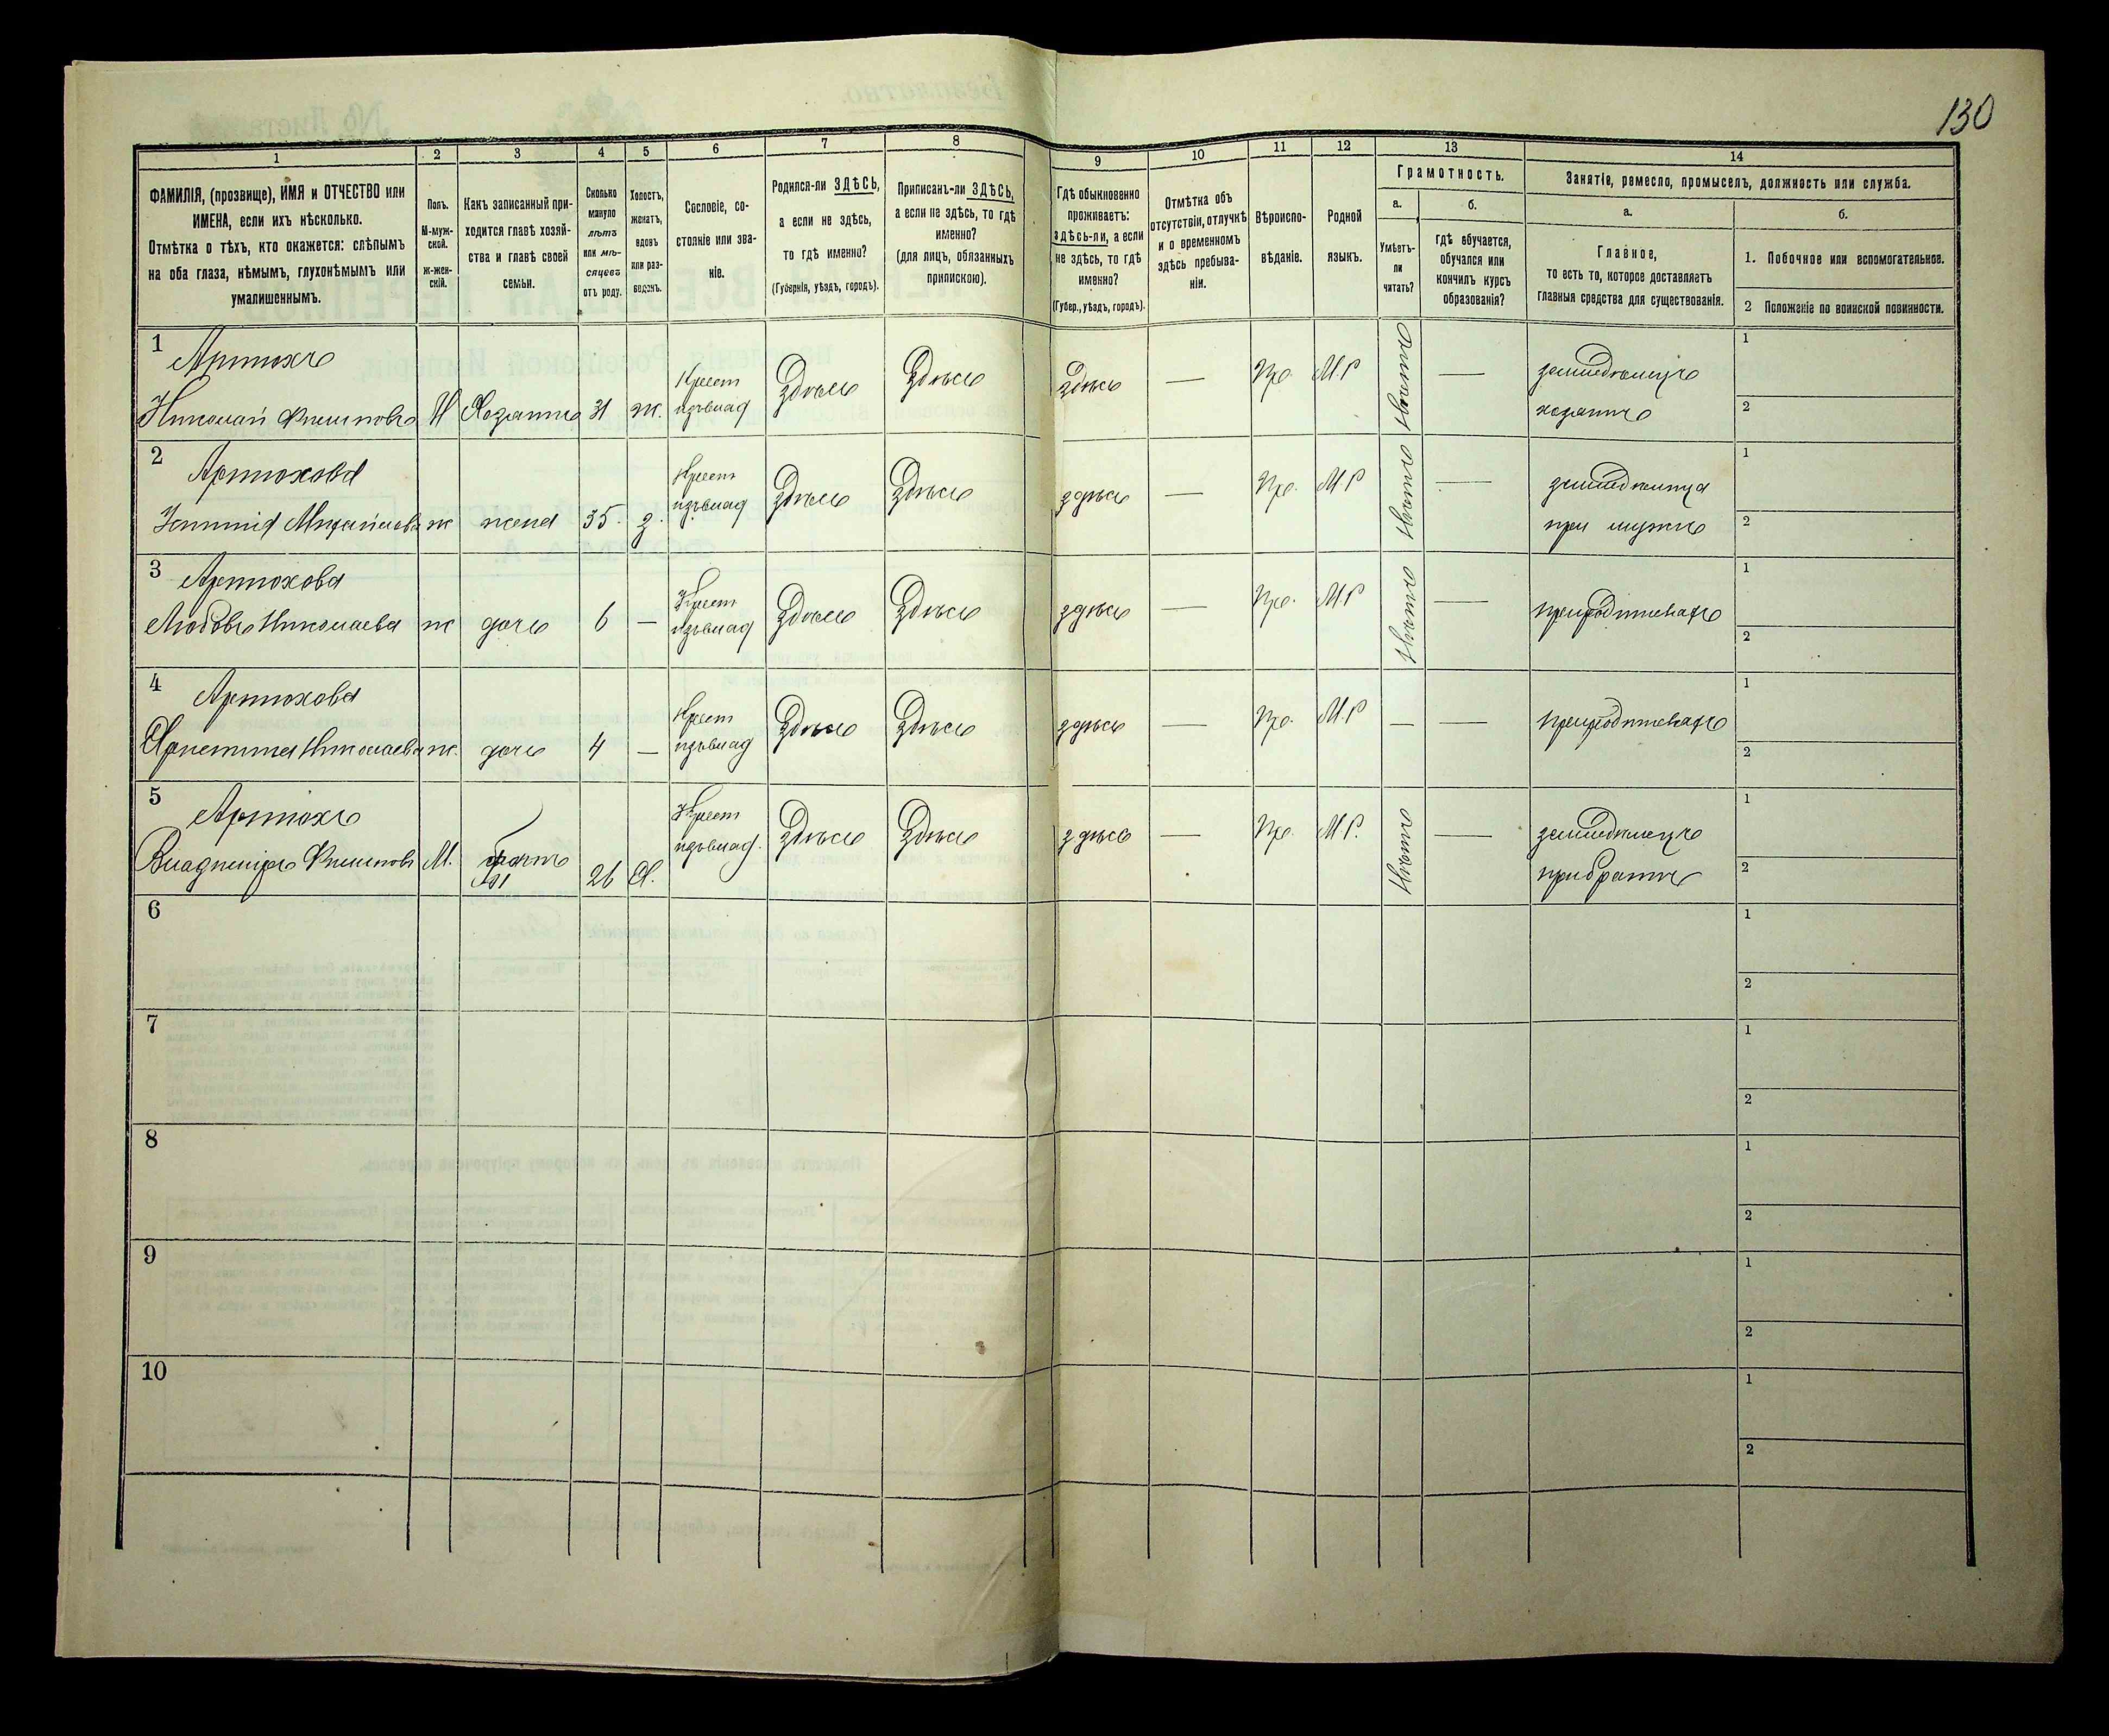 130
1
2
3
4
5
6
7
8
9
10
11
12
13
14
ФАМИЛІЯ, (прозвище), ИМЯ и ОТЧЕСТВО или
ИМЕНА, если ихъ нѣсколько.
Отмѣтка о тѣхъ, кто окажется: слѣпымъ
на оба глаза, нѣмымъ, глухонѣмымъ или
умалишеннымъ.
Полъ.
М-муж-
ской.
Ж-жен-
скій.
Какъ записанный при-
ходится главѣ хозяй-
ства и главѣ своей
семьи.
Сколько
минуло
лѣтъ
или мѣ-
сяцевъ
отъ роду.
Холостъ,
женатъ,
вдовъ
или раз-
веденъ.
Сословіе, со-
стояніе или зва-
ніе.
Родился-ли ЗДѢСЬ,
а если не здѣсь,
то гдѣ именно?
(Губернія, уѣздъ, городъ).
Приписанъ-ли ЗДѢСЬ,
а если не здѣсь, то гдѣ
именно?
(для лицъ, обязанныхъ
припискою).
Гдѣ обыкновенно
проживаетъ:
здѣсь-ли, а если
не здѣсь, то гдѣ
именно?
(Губер., уѣздъ, городъ).
Отмѣтка объ
отсутствіи, отлучкѣ
и о временномъ
здѣсь пребыва-
ніи.
Вѣроиспо-
вѣданіе.
Родной
языкъ.
Грамотность.
а.
Умѣетъ-
ли
читать?
б.
гдѣ обучается,
обучался или
кончилъ курсъ
образованія?
Занятіе, ремесло, промыселъ, должность или служба.
а.
Главное,
то есть то, которое доставляетъ
главныя средства для существованія.
б.
1. Побочное или вспомогательное.
2 Положеніе по воинской повинности.
1 Артюхъ
Николай Филиповъ М Хозяинъ 31 ж. Крест Здѣсь Здѣсь здѣсь — Пр. М.Р —
земледѣлецъ
хозяинъ
1
2
2 Артюхова
ж жена 35. з. Крест Здѣсь Здѣсь здѣсь — Пр. М Р —
при мужѣ
1
2
3 Артюхова
Любовь Николаева ж дочь 6 — Крест Здѣсь Здѣсь здѣсь — Пр. М.Р —
1
2
4 Артюхова
Христина Николаева ж. дочь 4 — Крест Здѣсь Здѣсь здѣсь — Пр. М.Р — —
1
2
5 Артюхъ
Владиміръ Филиповъ М. 26 Х. Крест Здѣсь Здѣсь здѣсь — Пр. М.Р. —
земледѣлецъ
при братѣ
1
2
6
1
2
7
1
2
8
1
2
9
1
2
10
1
2